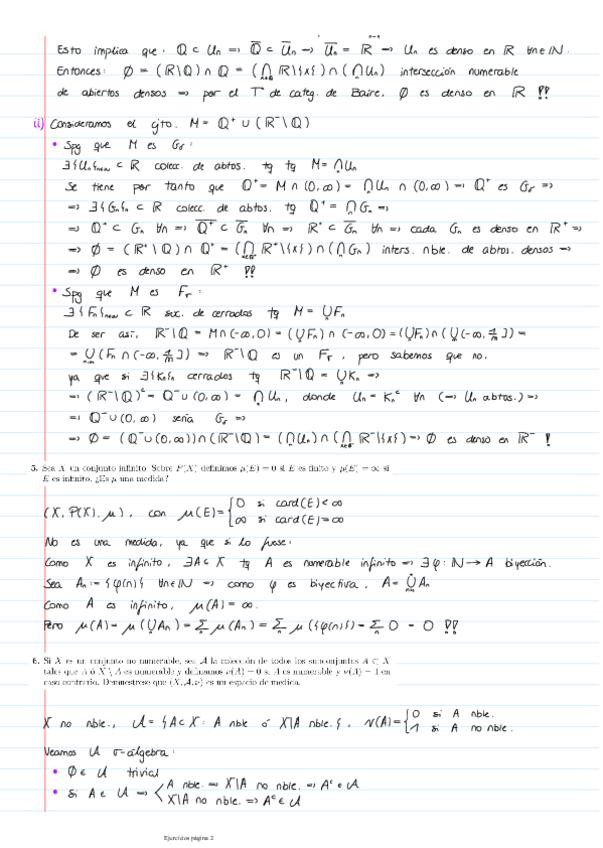 Esto implica que: Q ⊂ Uₙ ⟹ Q̅ ⊂ U̅ₙ ⟶ U̅ₙ = ℝ ⟶ Uₙ es denso en ℝ ∀n∈ℕ.
Entonces: Ø = (ℝ\Q) ∩ Q = (⋂ ℝ\{x}) ∩ (⋂Uₙ) intersección numerable
de abiertos densos ⟹ por el Tª de categ. de Baire, Ø es denso en ℝ !!
ii) Consideramos el cjto. M = Q⁺ ∪ (ℝ⁻\Q)
• Spg que M es G_δ:
∃{Uₙ}ₙ∈ℕ ⊂ ℝ colecc. de abtos. tq tq M = ⋂Uₙ
Se tiene por tanto que Q⁺ = M ∩ (0,∞) = ⋂Uₙ ∩ (0,∞) ⟹ Q⁺ es G_δ ⟹
⟹ ∃{Gₙ}ₙ ⊂ ℝ colecc. de abtos. tq Q⁺ = ⋂Gₙ ⟹
⟹ Q⁺ ⊂ Gₙ ∀n ⟹ Q̅⁺ ⊂ G̅ₙ ∀n ⟹ ℝ⁺ ⊂ G̅ₙ ∀n ⟹ cada Gₙ es denso en ℝ⁺ ⟹
⟹ Ø = (ℝ⁺\Q) ∩ Q⁺ = (⋂ ℝ⁺\{x}) ∩ (⋂Gₙ) inters. nble. de abtos. densos ⟹
⟹ Ø es denso en ℝ⁺ !!
• Spg que M es F_σ:
∃{Fₙ}ₙ∈ℕ ⊂ ℝ suc. de cerrados tq M = ⋃Fₙ
De ser así, ℝ⁻\Q = M∩(-∞,0) = (⋃Fₙ) ∩ (-∞,0) = (⋃Fₙ) ∩ (⋃(-∞,
= ⋃(Fₙ ∩ (-∞, ⟹ ℝ⁻\Q es un F_σ, pero sabemos que no,
ya que si ∃{Kₙ}ₙ cerrados tq ℝ⁻\Q = ⋃Kₙ ⟹
⟹ (ℝ⁻\Q)ᶜ = Q⁻∪(0,∞) = ⋂Uₙ, donde Uₙ = Kₙᶜ ∀n (⟶ Uₙ abtos.) ⟹
⟹ Q⁻∪(0,∞) sería G_δ ⟹
⟹ Ø = (Q⁻∪(0,∞)) ∩ (ℝ⁻\Q) = (⋂Uₙ) ∩ (⋂ ℝ⁻\{x}) ⟹ Ø es denso en ℝ⁻ !
5. Sea X un conjunto infinito. Sobre P(X) definimos μ(E) = 0 si E es finito y μ(E) = ∞ si
E es infinito. ¿Es μ una medida?
(X, P(X), μ), con μ(E) = { 0 si card(E) < ∞
∞ si card(E) = ∞
No es una medida, ya que si lo fuese:
Como X es infinito, ∃A⊂X tq A es numerable infinito ⟹ ∃φ: ℕ ⟶ A biyección.
Sea Aₙ := {φ(n)} ∀n∈ℕ ⟹ como φ es biyectiva, A = ⋃Aₙ
Como A es infinito, μ(A) = ∞.
Pero μ(A) = μ(⋃Aₙ) = Σ μ(Aₙ) = Σ μ({φ(n)}) = Σ 0 = 0 !!
6. Si X es un conjunto no numerable, sea 𝒜 la colección de todos los subconjuntos A ⊂ X
tales que A ó X \ A es numerable y definamos ν(A) = 0 si A es numerable y ν(A) = 1 en
caso contrario. Demuéstrese que (X, 𝒜, ν) es un espacio de medida.
X no nble., 𝒜 = {A⊂X : A nble ó X\A nble.}, ν(A) = { 0 si A nble.
1 si A no nble.
Veamos 𝒜 σ-álgebra:
• Ø ∈ 𝒜 trivial
• Si A ∈ 𝒜 ⟹ < A nble. ⟹ X\A no nble. ⟹ Aᶜ ∈ 𝒜
X\A no nble. ⟹ Aᶜ ∈ 𝒜
Ejercicios página 2